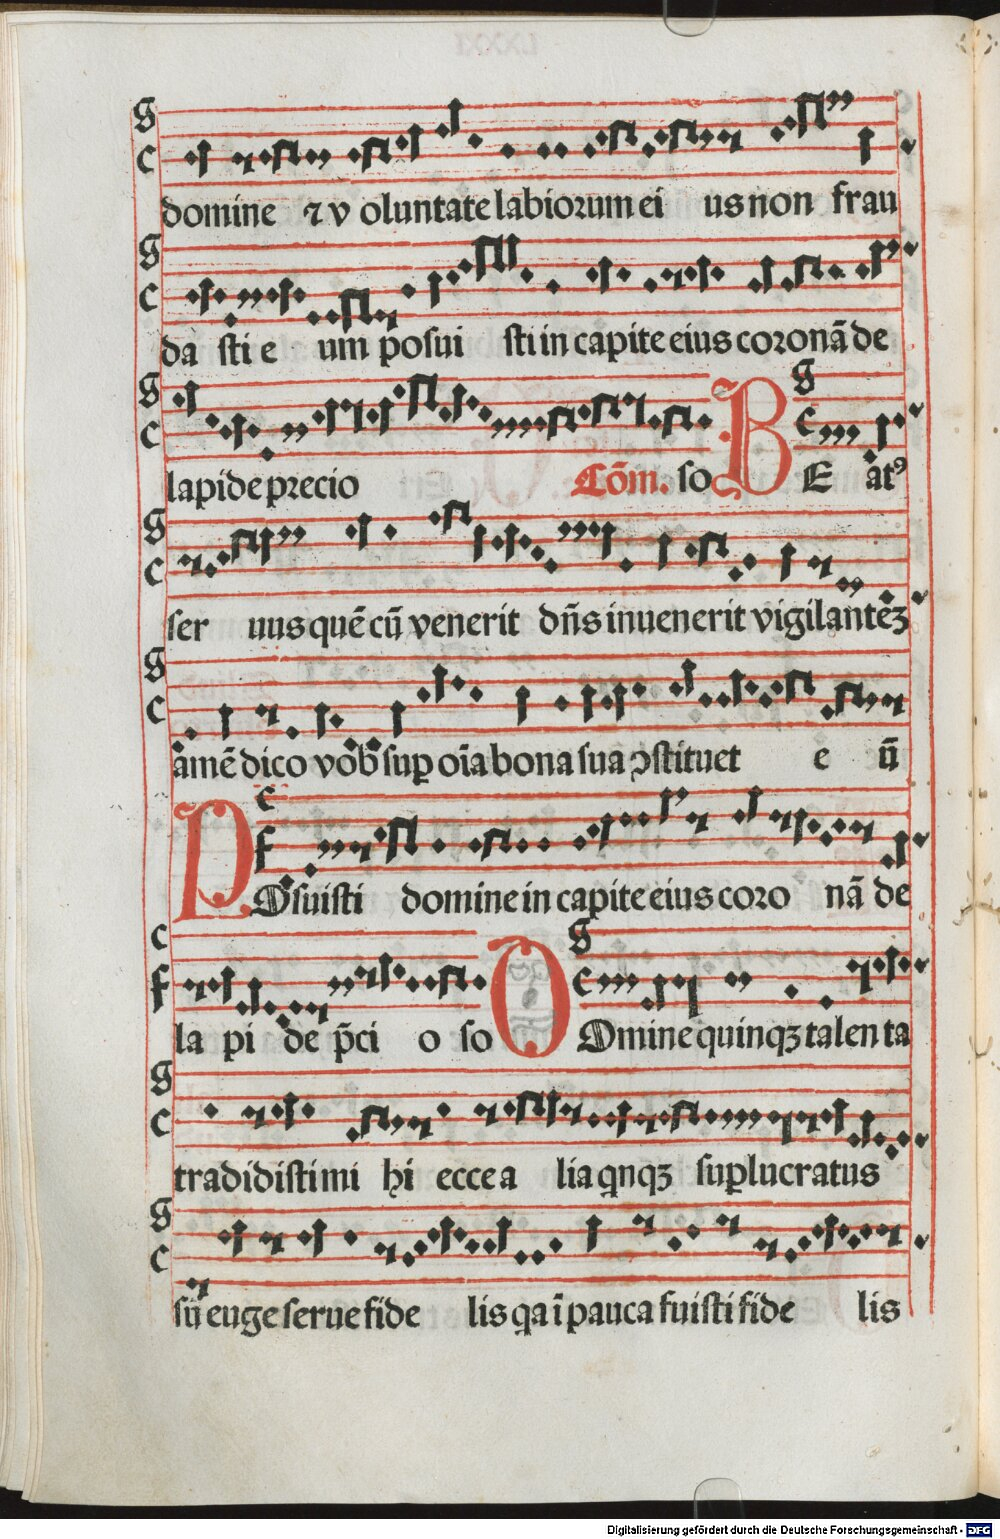 domine ⁊ v oluntate labiorum ei us non frau
da sti e um posui sti in capite eius coronā de
lapide precio Cōm. so B E atꝰ
ser uus quē cū venerit dn̄s inuenerit vigilantēꝫ
amē dico vob̄ suꝑ oīa bona sua ↄstituet e ū
P Osuisti domine in capite eius coro nā de
la pi de p̄ci o so D Omine quinqꝫ talen ta
tradidisti mi hi ecce a lia qnqꝫ suꝑlucratus
sū euge serue fide lis qa ī pauca fuisti fide lis
Digitalisierung gefördert durch die Deutsche Forschungsgemeinschaft - DFG